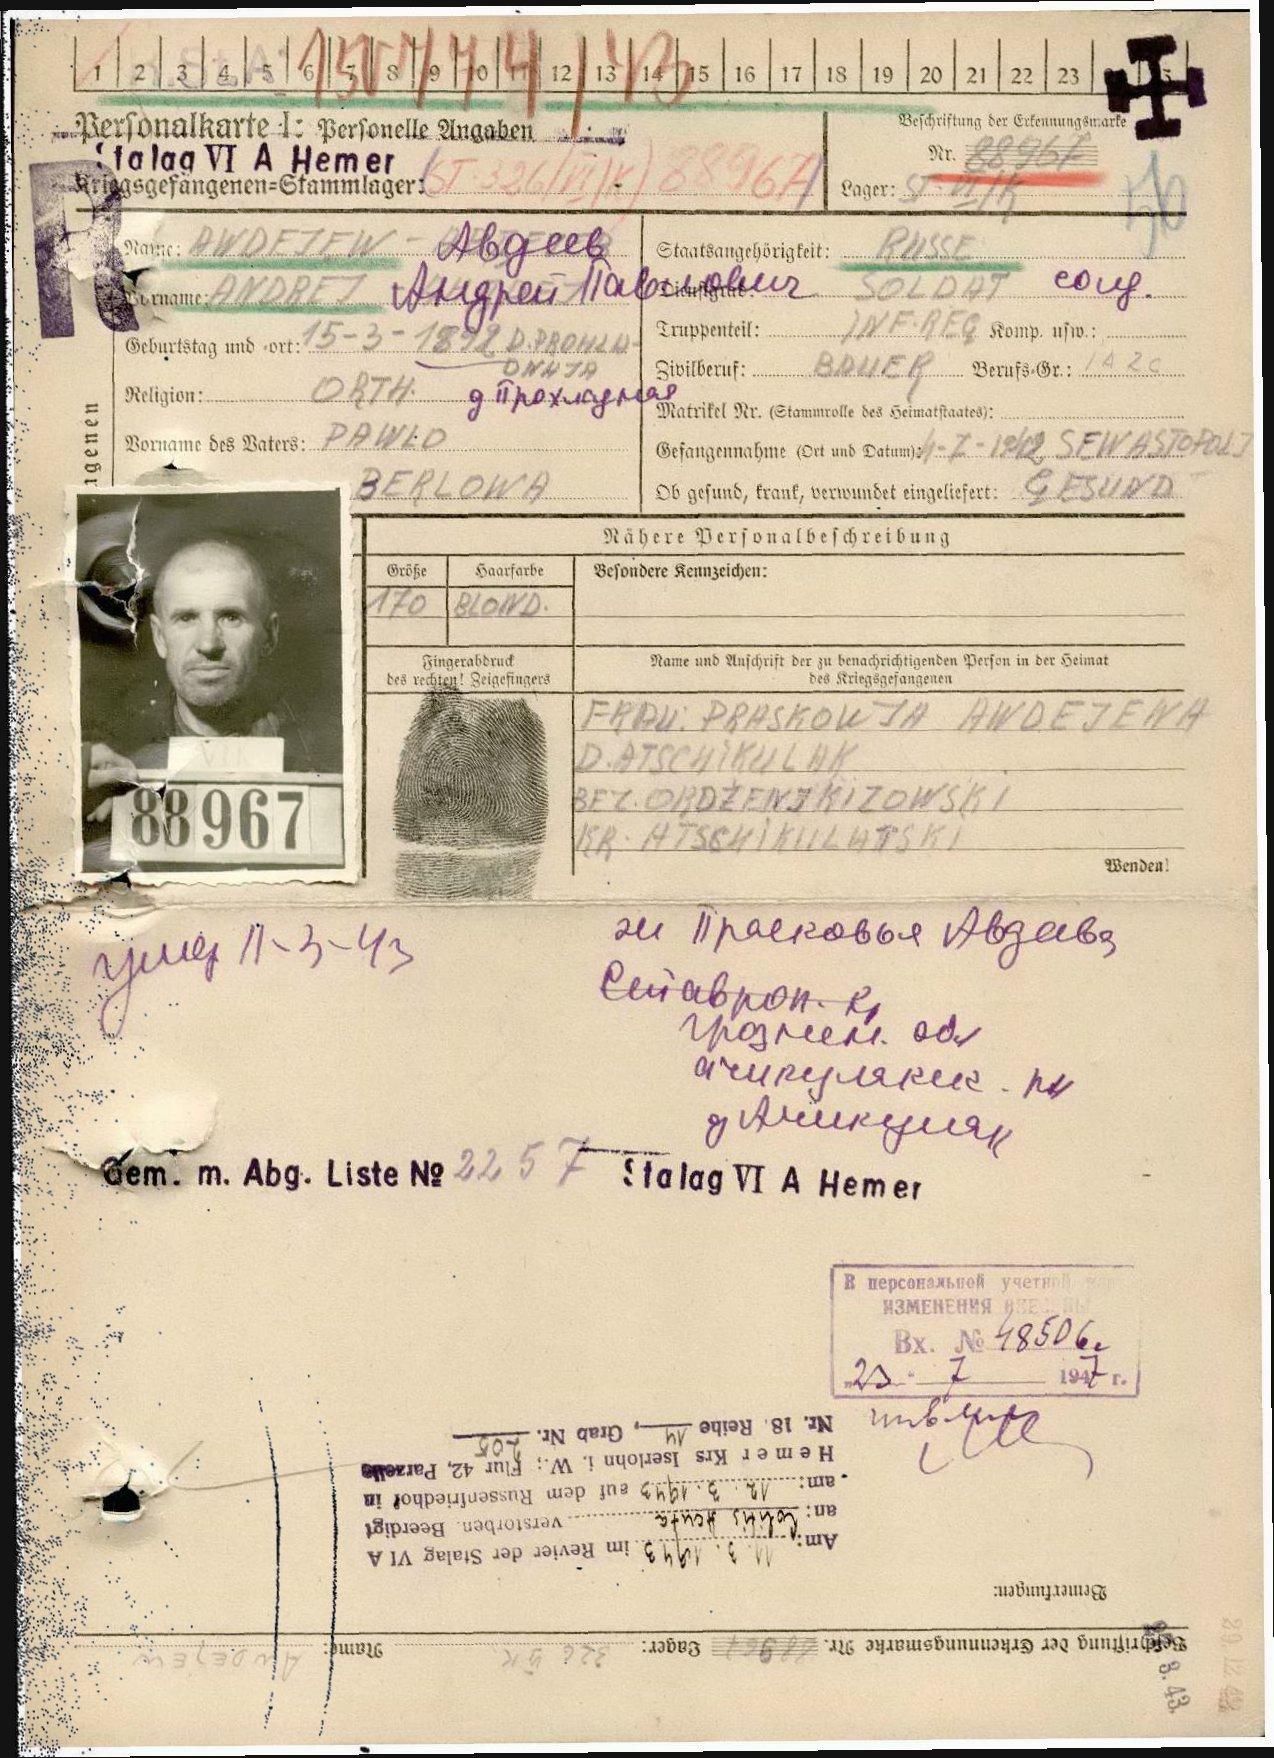 1 2 3 4 5 6 7 8 9 10 11 12 13 14 15 16 17 18 19 20 21 22 23
Personalkarte I: Personelle Angaben
Stalag VI A Hemer
Kriegsgefangenen-Stammlager: (ST. 326 (VI/K) 88967A)
Beschriftung der Erkennungsmarke
Nr. 88967
Lager: ST. VI/K
R
Name: AWDEJEW - Авдеев
Vorname: ANDREJ Андрей Павлович
Geburtstag und -ort: 15-3-1892 D. PROHLA-
DNAJA
Religion: ORTH. д Прохладная
Vorname des Vaters: PAWLO
BERLOWA
Staatsangehörigkeit: RUSSE
Dienstgrad: SOLDAT солд.
Truppenteil: INF. REG Komp. usw.:
Zivilberuf: BAUER Berufs-Gr.:
Matrikel Nr. (Stammrolle des Heimatstaates):
Gefangennahme (Ort und Datum): 4-7-1942 SEWASTOPOLJ
Ob gesund, krank, verwundet eingeliefert: GESUND
Nähere Personalbeschreibung
Größe Haarfarbe Besondere Kennzeichen:
170 BLOND.
Fingerabdruck
des rechten! Zeigefingers
Name und Anschrift der zu benachrichtigenden Person in der Heimat
des Kriegsgefangenen
FRAU: PRASKOWJA AWDEJEWA
D. ATSCHIKULAK
BEZ. ORDŻENJKIZOWSKI
KR. ATSCHIKULATSKI
Wenden!
VI K
88967
умер 11-3-43
ж Прасковья Авдеева
Ставроп. кр
Грознен. обл
Ачикулакск. рн
д Ачикулак
Gem. m. Abg. Liste № 2257 Stalag VI A Hemer
В персональной учетной
ИЗМЕНЕНИЯ ВНЕСЕНЫ
Вх. № 48506
"23" 7 1947 г.
Beschriftung der Erkennungsmarke Nr. 88967 Lager: 326 VI K Name: AWDEJEW
Bemerkungen:
Am: 11. 3. 1943 im Revier der Stalag VI A
an: Colitis Acuta verstorben. Beerdigt
am: 12. 3. 1943 auf dem Russenfriedhof in
Hemer Krs Iserlohn i. W.; Flur 42, Parzelle
Nr. 18. Reihe 14, Grab Nr. 205